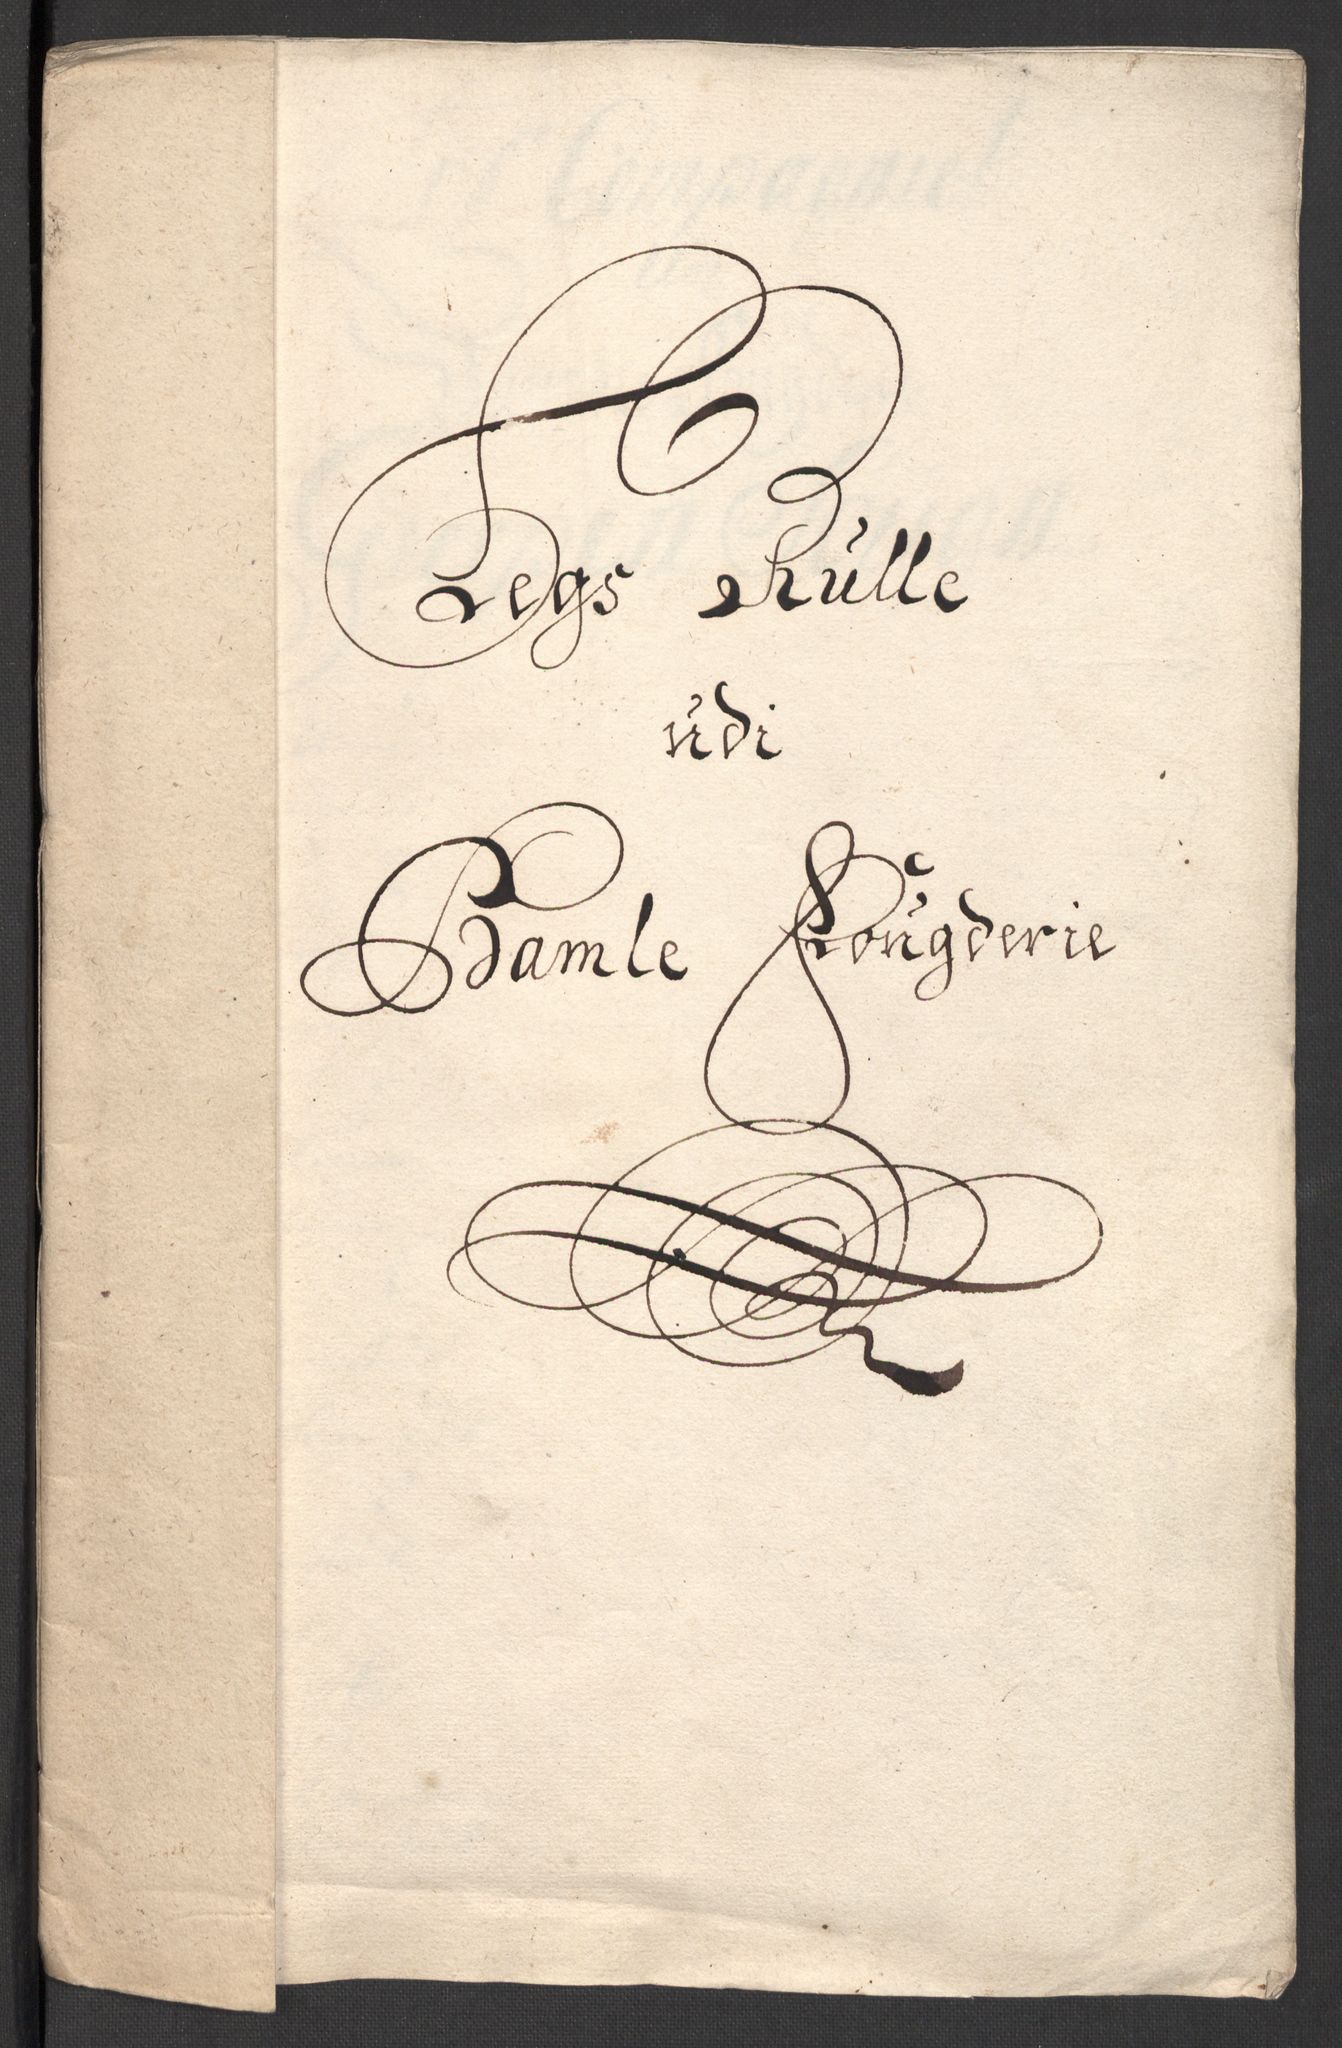 Legs Rulle
udi
Bamle Fougderie